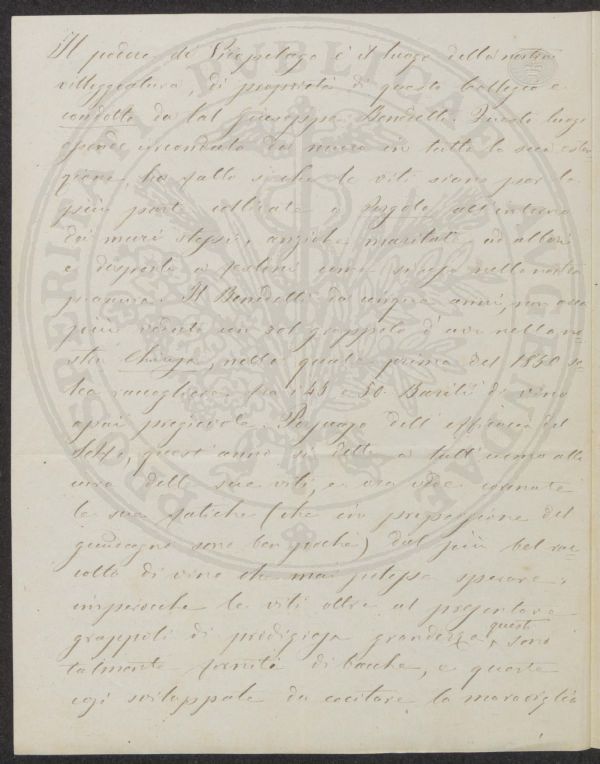 Il podere di Precpelago è il luogo della nostra
villeggiatura, di proprietà di questo Collegio e
condotto da tal Giuseppe Benedetti. Questo luogo
essendo circondato da muro in tutta la sua esten=
sione, ha fatto sì che le viti siano per la
più parte collocate a Pergola all'intorno
dei muri stessi, anzichè maritate ad alberi
e disposte a festoni come si usa nella nostra
pianura. Il Benedetti da cinque anni, non avea
più veduto un sol grappolo d'uva nella no=
stra Chiusa, nella quale prima del 1850 so=
lea raccogliere fra i 48 e 50 Barili di vino
assai pregievole. Persuaso dell'efficacia del
Solfo, quest'anno si dette a tutt'uomo alla
cura delle sue viti, e ora vede coronate
le sue fatiche (che in proporzione del
guadagno sono ben poche) dal più bel rac=
colto di vino che mai potesse sperare;
imperocchè le viti oltre al presentare
grappoli di prodigiosa grandezza, questi sono
talmente forniti di bacche, e queste
così sviluppate da eccitare la maraviglia
PROSPERITATI PUBLICAE AUGENDAE